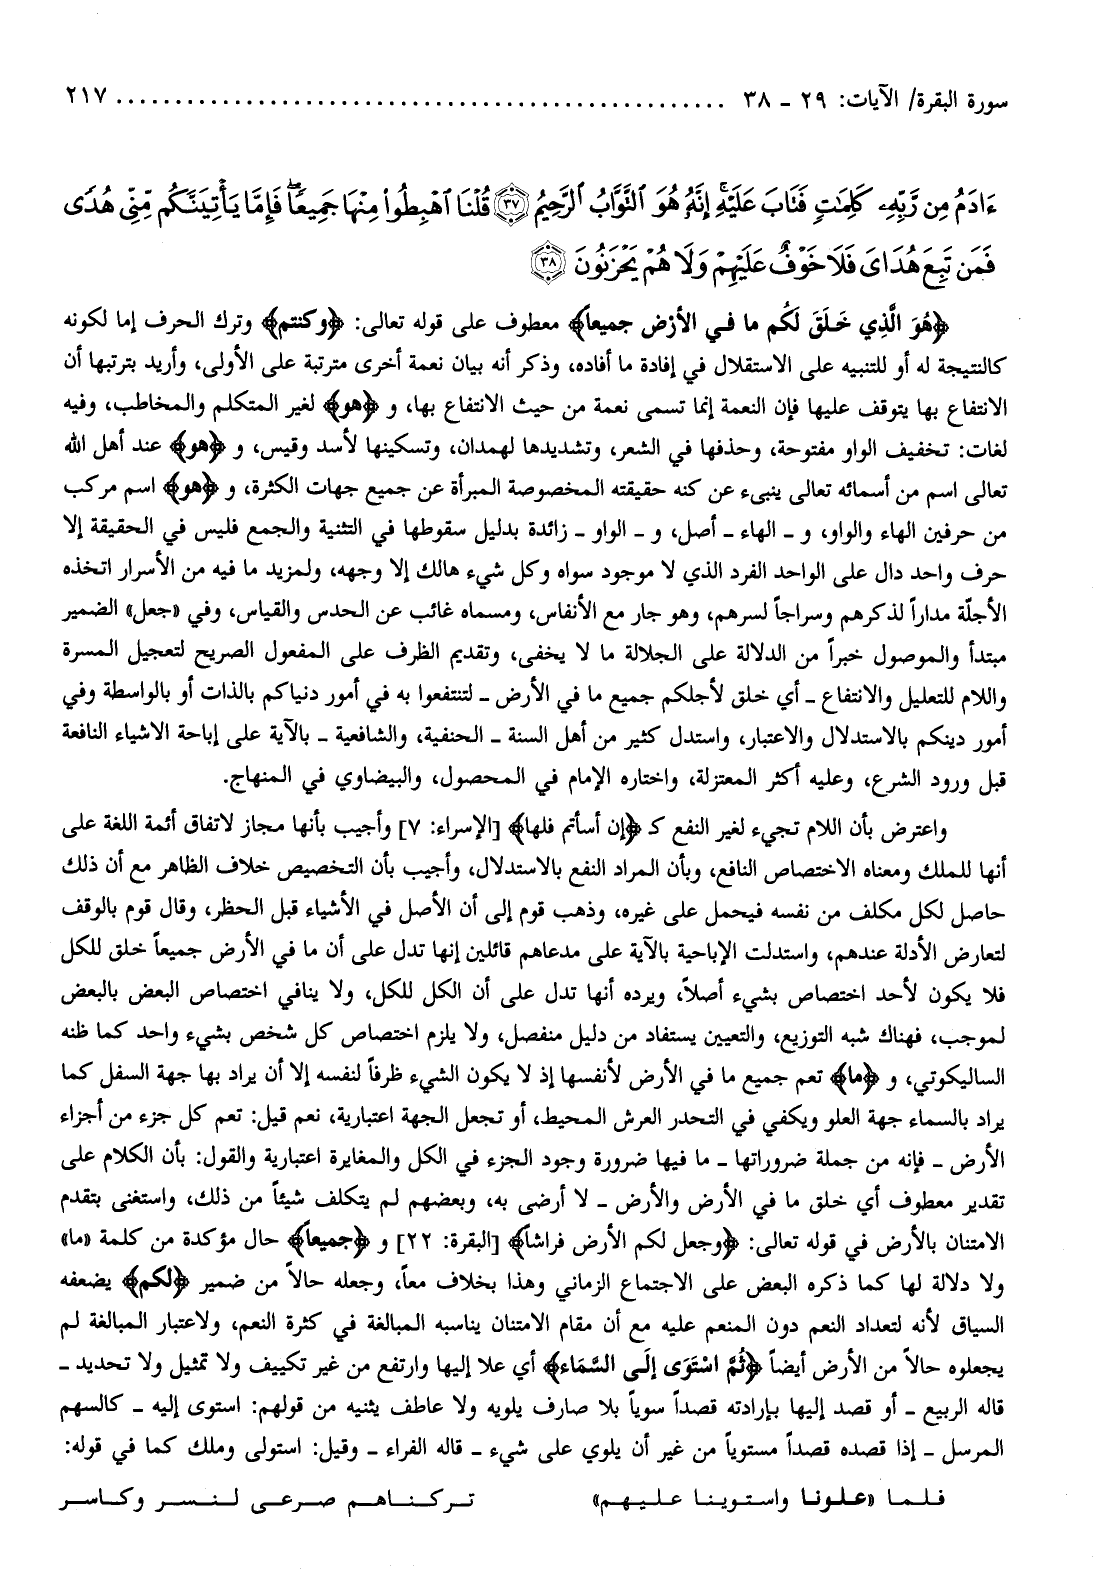 سورة البقرة/ الآيات: ٢٩ ـ ٣٨ ........................................................ ٢١٧
ءَادَمُ مِن رَّبِّهِۦ كَلِمَٰتٍ فَتَابَ عَلَيْهِ ۚ إِنَّهُۥ هُوَ ٱلتَّوَّابُ ٱلرَّحِيمُ ﴿٣٧﴾ قُلْنَا ٱهْبِطُوا۟ مِنْهَا جَمِيعًا ۖ فَإِمَّا يَأْتِيَنَّكُم مِّنِّى هُدًى
فَمَن تَبِعَ هُدَاىَ فَلَا خَوْفٌ عَلَيْهِمْ وَلَا هُمْ يَحْزَنُونَ ﴿٣٨﴾
﴿هُوَ الَّذِي خَلَقَ لَكُم ما في الأَرْضِ جميعاً﴾ معطوف على قوله تعالى: ﴿وكنتم﴾ وترك الحرف إما لكونه
كالنتيجة له أو للتنبيه على الاستقلال في إفادة ما أفاده، وذكر أنه بيان نعمة أخرى مترتبة على الأولى، وأريد بترتبها أن
الانتفاع بها يتوقف عليها فإن النعمة إنما تسمى نعمة من حيث الانتفاع بها، و ﴿هو﴾ لغير المتكلم والمخاطب، وفيه
لغات: تخفيف الواو مفتوحة، وحذفها في الشعر، وتشديدها لهمدان، وتسكينها لأسد وقيس، و ﴿هو﴾ عند أهل الله
تعالى اسم من أسمائه تعالى ينبىء عن كنه حقيقته المخصوصة المبرأة عن جميع جهات الكثرة، و ﴿هو﴾ اسم مركب
من حرفين الهاء والواو، و ـ الهاء ـ أصل، و ـ الواو ـ زائدة بدليل سقوطها في التثنية والجمع فليس في الحقيقة إلا
حرف واحد دال على الواحد الفرد الذي لا موجود سواه وكل شيء هالك إلا وجهه، ولمزيد ما فيه من الأسرار اتخذه
الأجلّة مداراً لذكرهم وسراجاً لسرهم، وهو جار مع الأنفاس، ومسماه غائب عن الحدس والقياس، وفي «جعل» الضمير
مبتدأ والموصول خبراً من الدلالة على الجلالة ما لا يخفى، وتقديم الظرف على المفعول الصريح لتعجيل المسرة
واللام للتعليل والانتفاع ـ أي خلق لأجلكم جميع ما في الأرض ـ لتنتفعوا به في أمور دنياكم بالذات أو بالواسطة وفي
أمور دينكم بالاستدلال والاعتبار، واستدل كثير من أهل السنة ـ الحنفية، والشافعية ـ بالآية على إباحة الاشياء النافعة
قبل ورود الشرع، وعليه أكثر المعتزلة، واختاره الإمام في المحصول، والبيضاوي في المنهاج.
واعترض بأن اللام تجيء لغير النفع كـ ﴿إن أسأتم فلها﴾ [الإسراء: ٧] وأجيب بأنها مجاز لاتفاق أئمة اللغة على
أنها للملك ومعناه الاختصاص النافع، وبأن المراد النفع بالاستدلال، وأجيب بأن التخصيص خلاف الظاهر مع أن ذلك
حاصل لكل مكلف من نفسه فيحمل على غيره، وذهب قوم إلى أن الأصل في الأشياء قبل الحظر، وقال قوم بالوقف
لتعارض الأدلة عندهم، واستدلت الإباحية بالآية على مدعاهم قائلين إنها تدل على أن ما في الأرض جميعاً خلق للكل
فلا يكون لأحد اختصاص بشيء أصلاً، ويرده أنها تدل على أن الكل للكل، ولا ينافي اختصاص البعض بالبعض
لموجب، فهناك شبه التوزيع، والتعيين يستفاد من دليل منفصل، ولا يلزم اختصاص كل شخص بشيء واحد كما ظنه
الساليكوتي، و ﴿ما﴾ تعم جميع ما في الأرض لأنفسها إذ لا يكون الشيء ظرفاً لنفسه إلا أن يراد بها جهة السفل كما
يراد بالسماء جهة العلو ويكفي في التحدر العرش المحيط، أو تجعل الجهة اعتبارية، نعم قيل: تعم كل جزء من أجزاء
الأرض ـ فإنه من جملة ضروراتها ـ ما فيها ضرورة وجود الجزء في الكل والمغايرة اعتبارية والقول: بأن الكلام على
تقدير معطوف أي خلق ما في الأرض والأرض ـ لا أرضى به، وبعضهم لم يتكلف شيئاً من ذلك، واستغنى بتقدم
الامتنان بالأرض في قوله تعالى: ﴿وجعل لكم الأرض فراشاً﴾ [البقرة: ٢٢] و ﴿جميعاً﴾ حال مؤكدة من كلمة «ما»
ولا دلالة لها كما ذكره البعض على الاجتماع الزماني وهذا بخلاف معاً، وجعله حالاً من ضمير ﴿لكم﴾ يضعفه
السياق لأنه لتعداد النعم دون المنعم عليه مع أن مقام الامتنان يناسبه المبالغة في كثرة النعم، ولاعتبار المبالغة لم
يجعلوه حالاً من الأرض أيضاً ﴿ثُمَّ اسْتَوَى إِلَى السَّمَاء﴾ أي علا إليها وارتفع من غير تكييف ولا تمثيل ولا تحديد ـ
قاله الربيع ـ أو قصد إليها بإرادته قصداً سوياً بلا صارف يلويه ولا عاطف يثنيه من قولهم: استوى إليه ـ كالسهم
المرسل ـ إذا قصده قصداً مستوياً من غير أن يلوي على شيء ـ قاله الفراء ـ وقيل: استولى وملك كما في قوله:
فلما «علونا واستوينا عليهم» تركناهم صرعى لنسر وكاسر